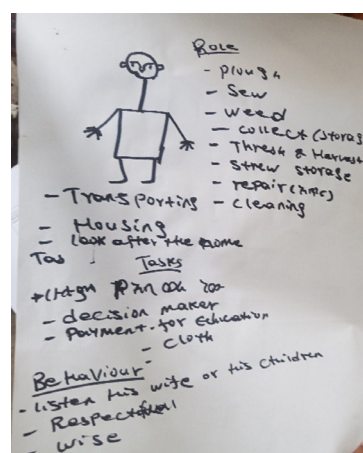 Role
- Plough
- Sew
- weed
- collect (storag
- Thresh & Harvest
- Straw storage
- repair
- cleaning
- Transporting
- Housing
- look after the home
Tas
Tasks
- decision maker
- Payment for Education
- cloth
Behaviour
- Listen his wife or his children
- Respectfull
- wise